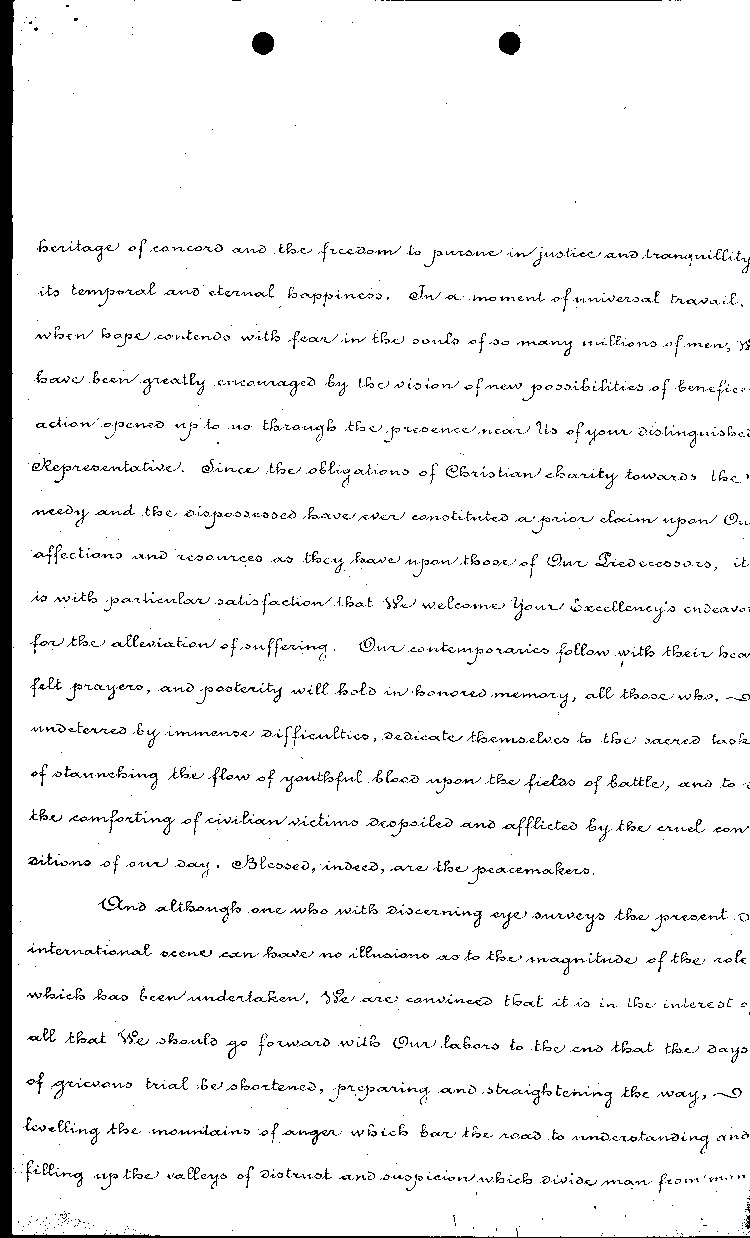 heritage of concord and the freedom to pursue in justice and tranquillity
its temporal and eternal happiness. In a moment of universal travail,
when hope contends with fear in the souls of so many millions of men, W
have been greatly encouraged by the vision of new possibilities of benefice
action opened up to us through the presence near Us of your distinguished
Representative. Since the obligations of Christian charity towards the
needy and the dispossessed have ever constituted a prior claim upon Ou
affections and resources as they have upon those of Our Predecessors, it
is with particular satisfaction that We welcome Your Excellency's endeavo
for the alleviation of suffering. Our contemporaries follow with their hea
felt prayers, and posterity will hold in honored memory, all those who,
undeterred by immense difficulties, dedicate themselves to the sacred task
of staunching the flow of youthful blood upon the fields of battle, and to
the comforting of civilian victims despoiled and afflicted by the cruel con
ditions of our day. Blessed, indeed, are the peacemakers.
And although one who with discerning eye surveys the present
international scene can have no illusions as to the magnitude of the role
which has been undertaken, We are convinced that it is in the interest o
all that We should go forward with Our labors to the end that the days
of grievous trial be shortened, preparing and straightening the way,
levelling the mountains of anger which bar the road to understanding and
filling up the valleys of distrust and suspicion which divide man from man